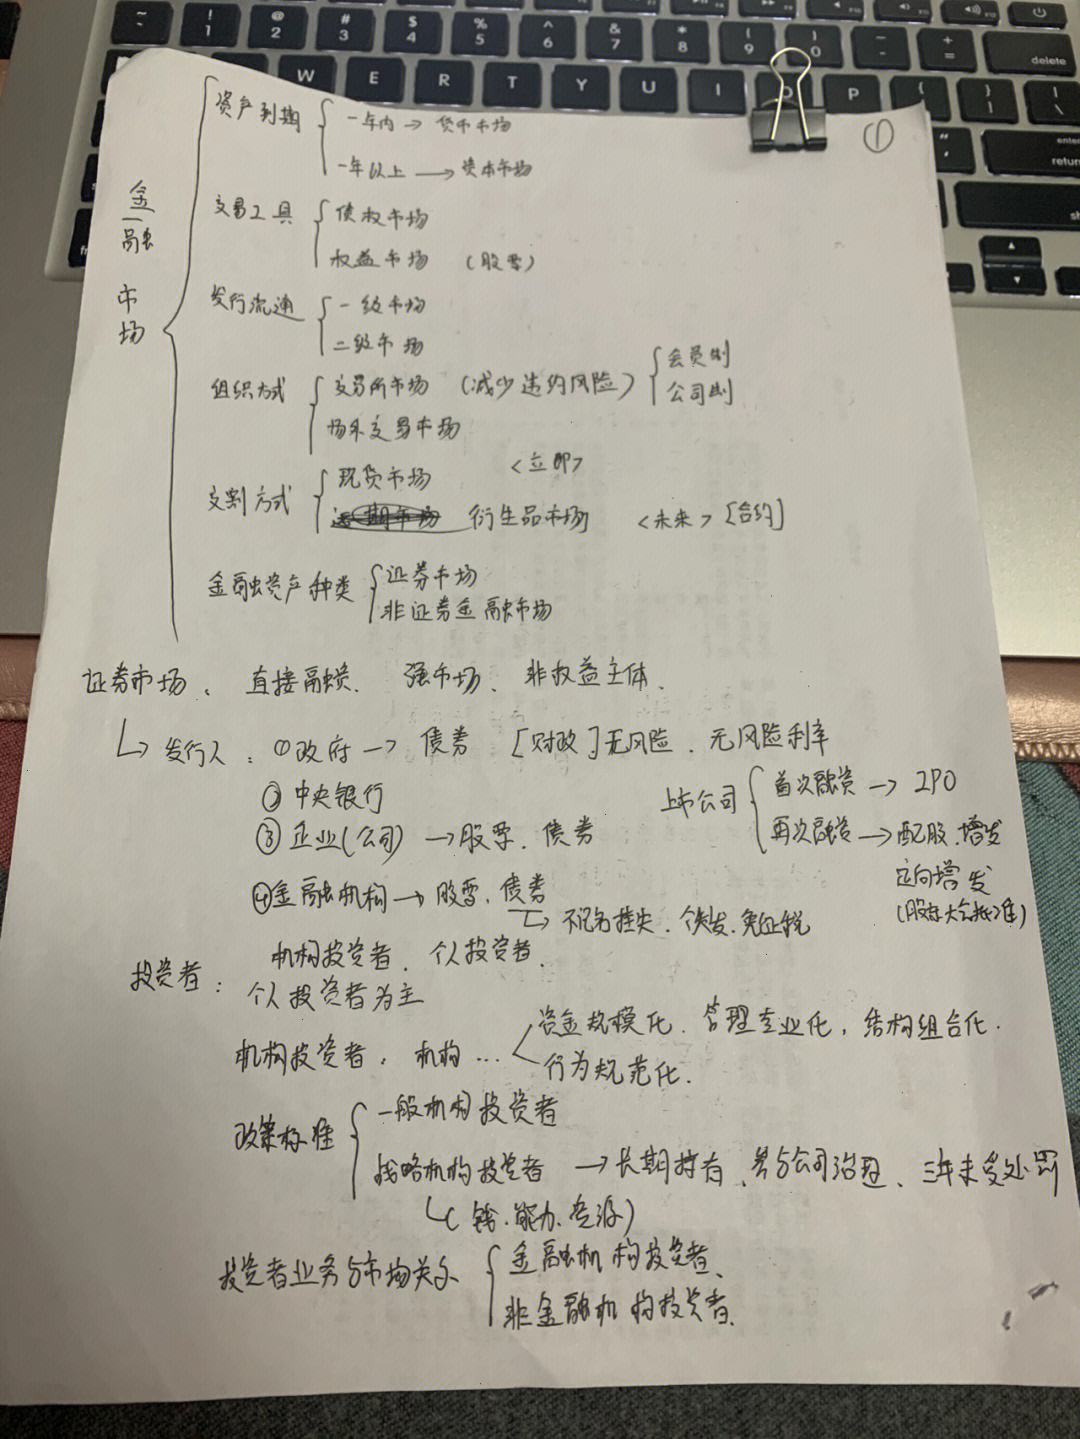 ①
金融市场
资产到期
一年内 → 货币市场
一年以上 → 资本市场
交易工具
债权市场
权益市场 (股票)
发行流通
一级市场
二级市场
组织方式
交易所市场 (减少违约风险)
会员制
公司制
场外交易市场
交割方式
现货市场 <立即>
衍生品市场 <未来> [合约]
金融资产种类
证券市场
非证券金融市场
证券市场、直接融资、强市场、非权益主体.
↳ 发行人: ①政府 → 债券 [财政] 无风险、无风险利率
②中央银行
③企业(公司) → 股票、债券
上市公司
首次融资 → IPO
再次融资 → 配股、增发
定向增发
(股东大会批准)
④金融机构 → 股票、债券
↳ 不记名挂失、个人发、免征税
投资者: 机构投资者、个人投资者.
个人投资者为主
机构投资者: 机构…
资金规模化、管理专业化,结构组合化.
行为规范化.
政策标准
一般机构投资者
战略机构投资者 → 长期持有、参与公司治理、三年未受处罚
↳ (钱、能力、资源)
投资者业务与市场关系
金融机构投资者、
非金融机构投资者.
~ ! 1 @ 2 # 3 $ 4 % 5 ^ 6 & 7 * 8 ( 9 ) 0 - + = delete
W E R T Y U I O P { [ } ] | \
enter
return
shift